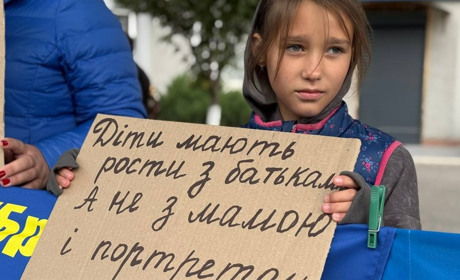 Діти мають
рости з батьками
А не з мамою
і портретом